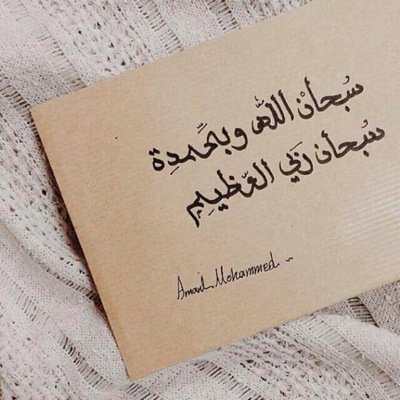 سُبحأنْ اللَّه وبحَمدِة
سُبحأن رَبّي العَّظِيمِ
Mohammed